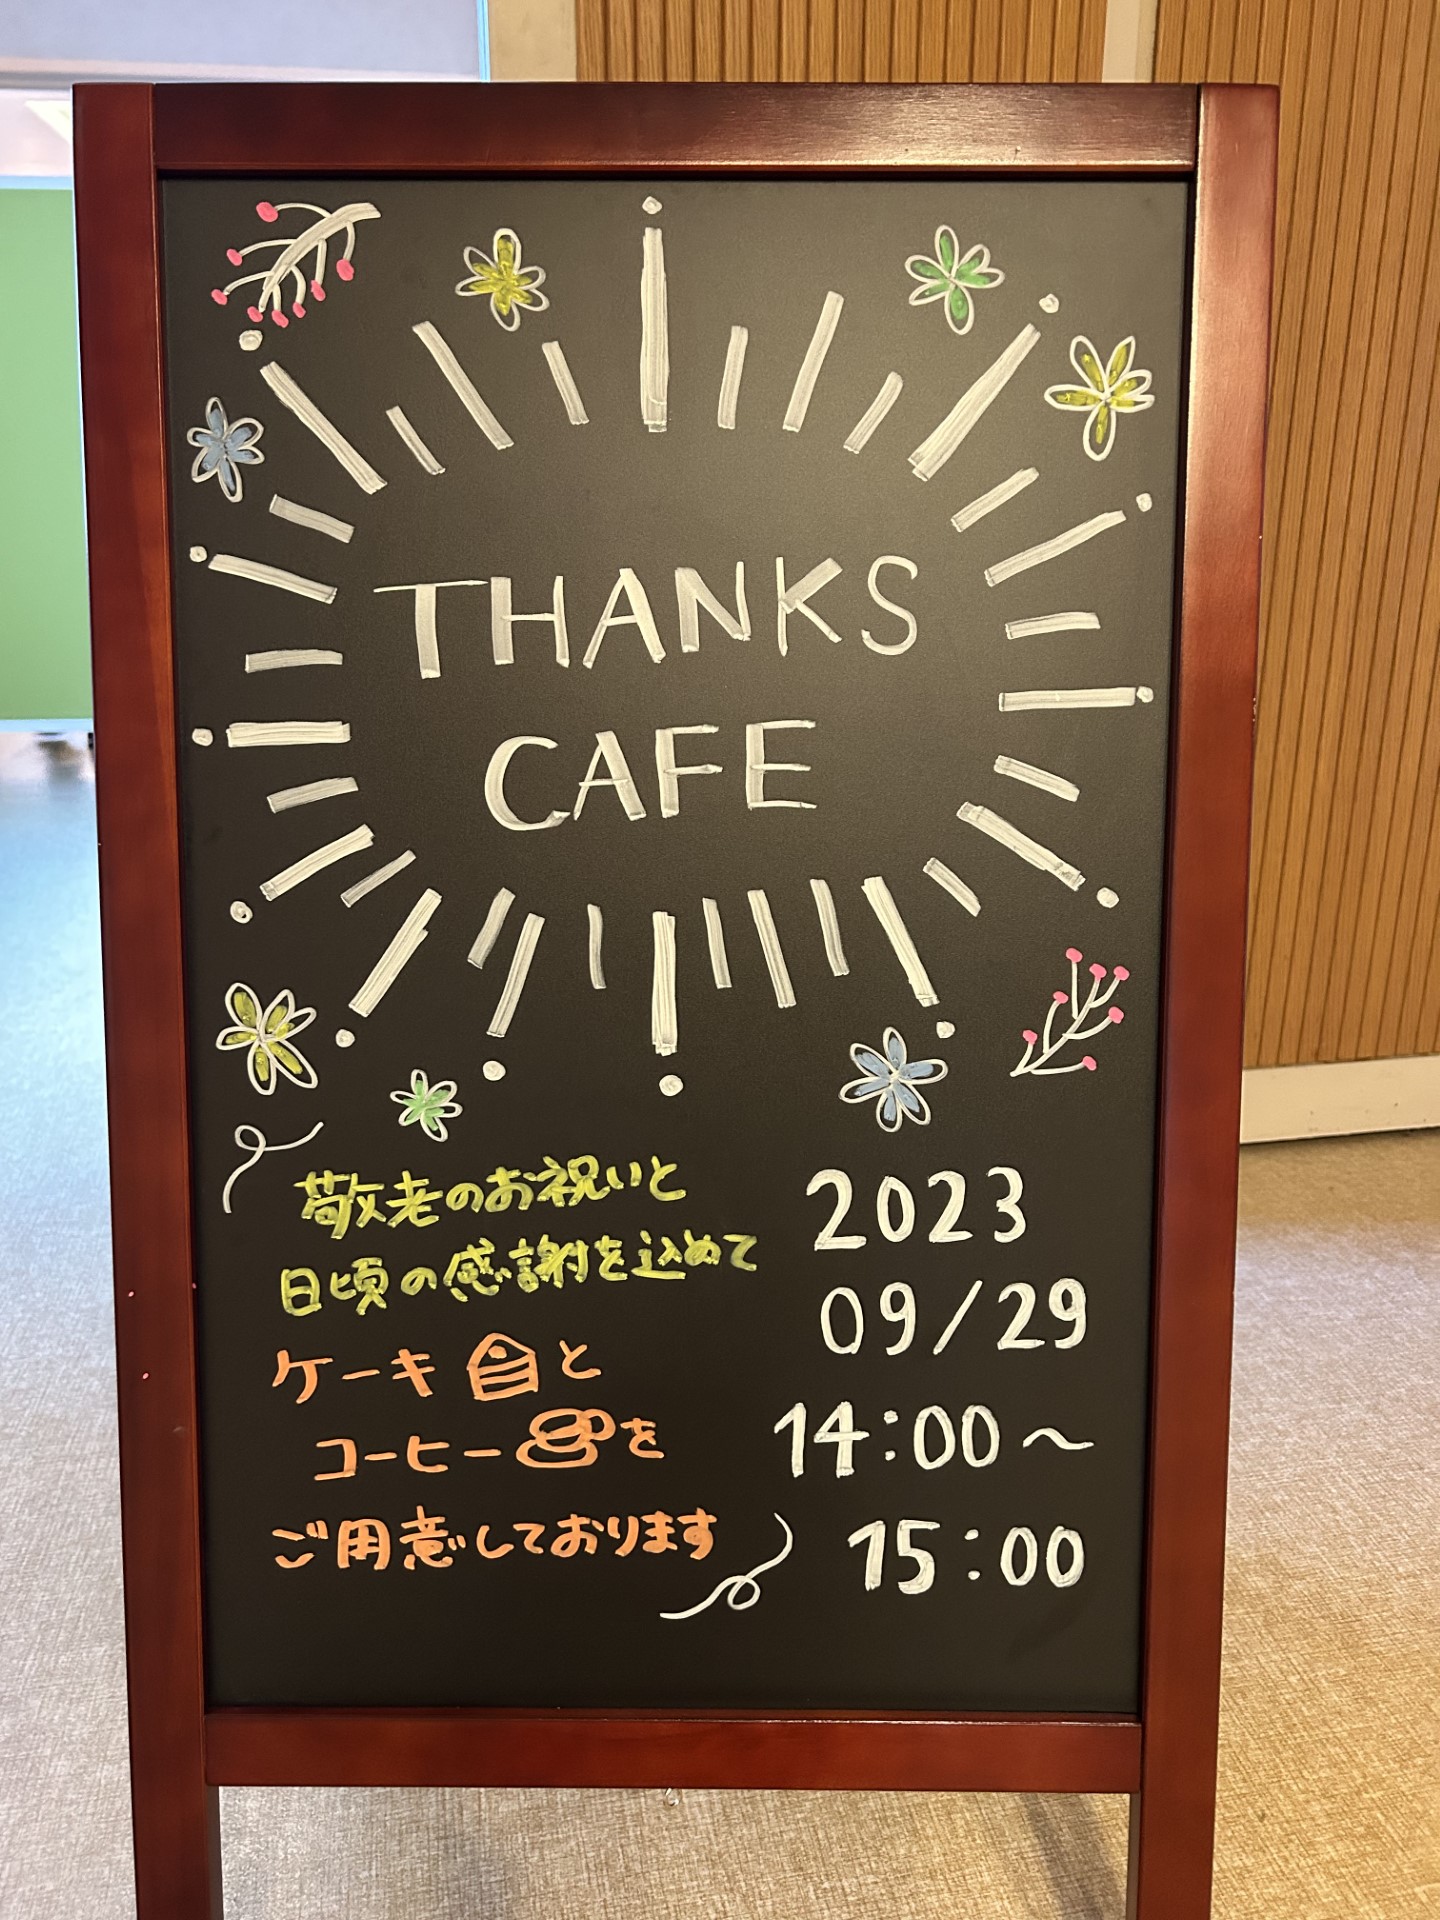 THANKS
CAFE
敬老のお祝いと
日頃の感謝を込めて
ケーキと
コーヒーを
ご用意しております
2023
09/29
14:00~
15:00